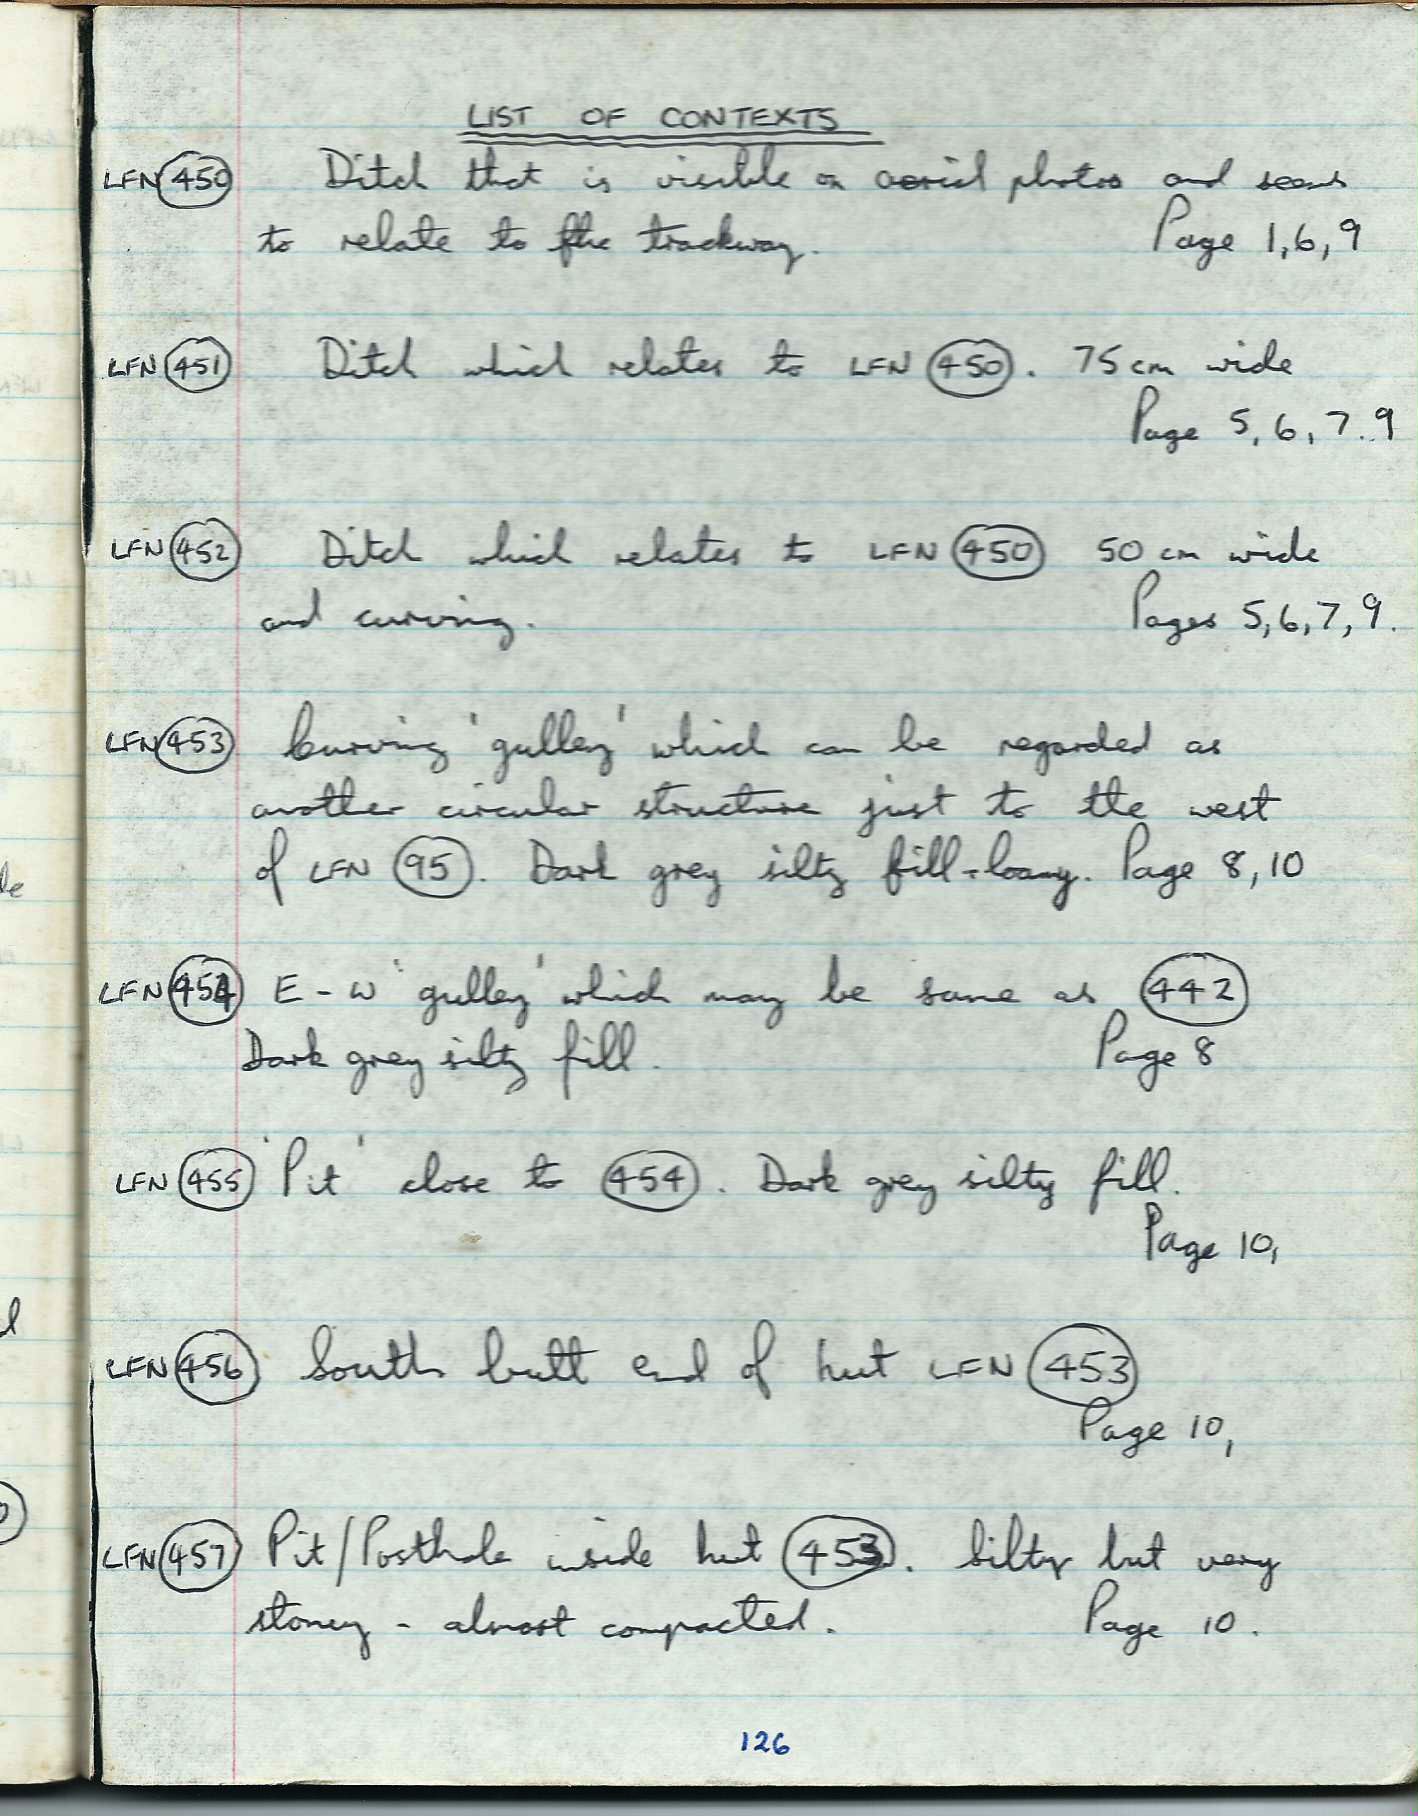 LIST OF CONTEXTS
LFN 450 Ditch that is visible on aerial photos and seems
to relate to the trackway. Page 1,6,9
LFN 451 Ditch which relates to LFN 450. 75 cm wide
Page 5, 6, 7. 9
LFN 452 Ditch which relates to LFN 450 50 cm wide
and curving. Pages 5,6,7,9.
LFN 453 Curving 'gulley' which can be regarded as
another circular structure just to the west
of LFN 95. Dark grey silty fill - loamy. Page 8, 10
LFN 454 E - W 'gulley' which may be same as 442
Dark grey silty fill. Page 8
LFN 455 'Pit' close to 454. Dark grey silty fill.
Page 10,
LFN 456 South butt end of hut LFN 453
Page 10,
LFN 457 Pit/Posthole inside hut 453. Silty but very
stoney - almost compacted. Page 10.
126